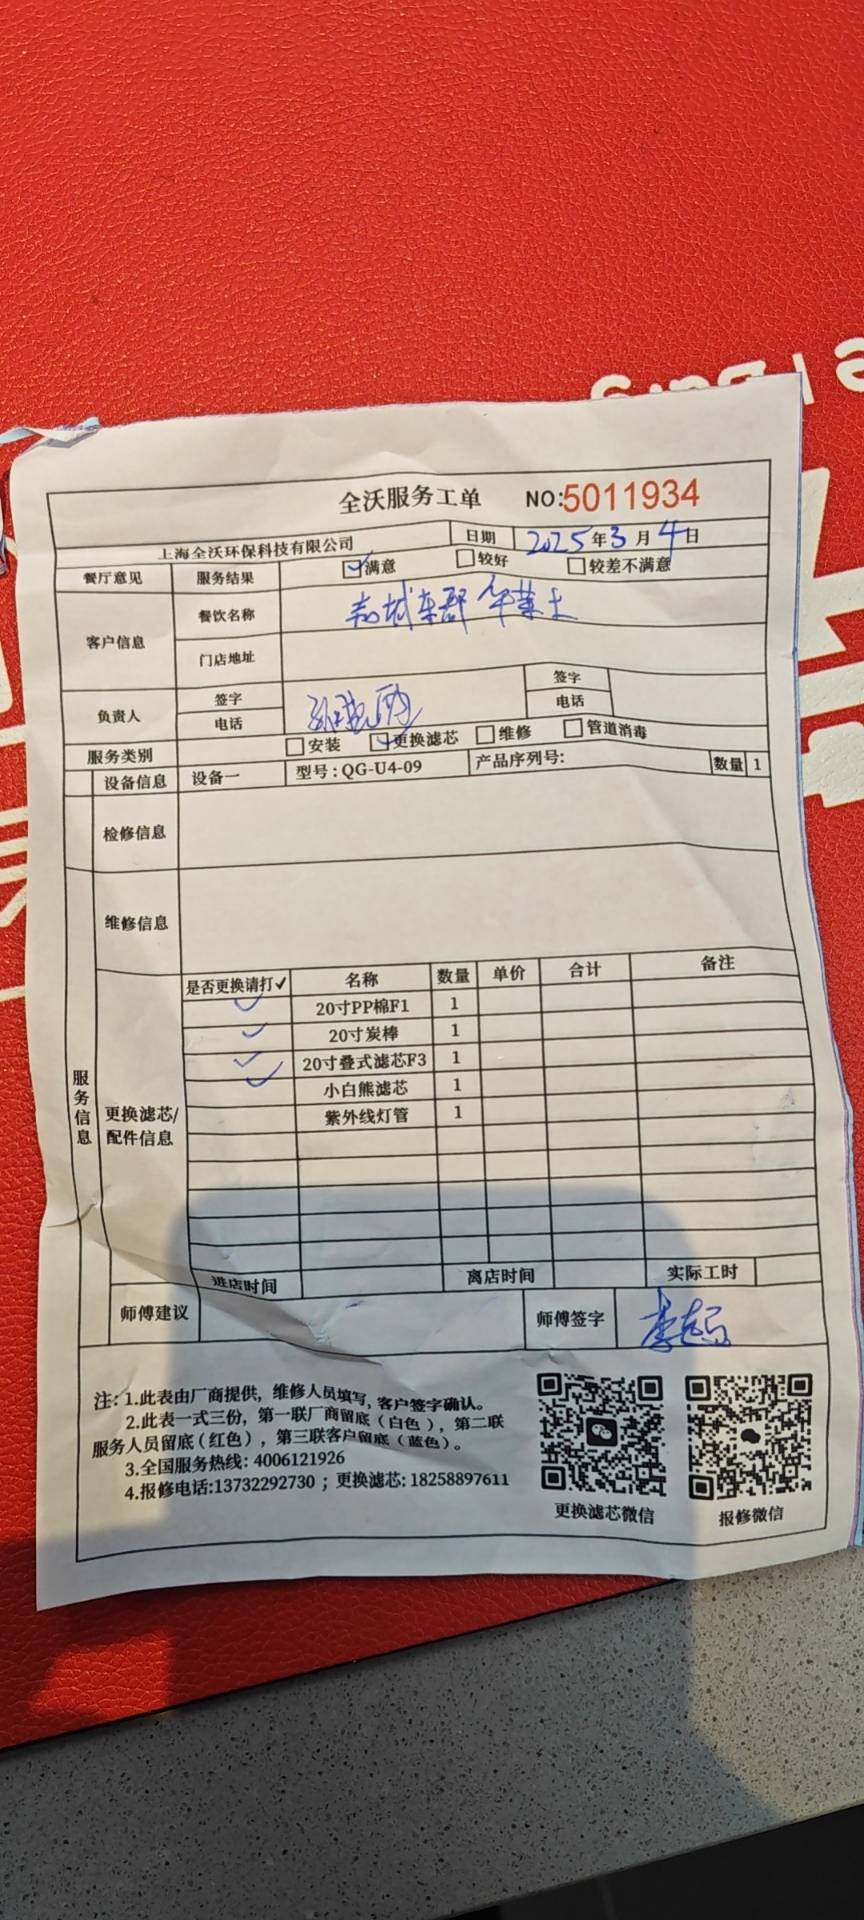 全沃服务工单 NO:5011934
上海全沃环保科技有限公司 日期 2025年3月4日
餐厅意见 服务结果 满意 较好 较差不满意
客户信息 餐饮名称
门店地址
负责人 签字 签字
电话 电话
服务类别 安装 更换滤芯 维修 管道消毒
设备信息 设备一 型号:QG-U4-09 产品序列号: 数量 1
检修信息
维修信息
服务信息
更换滤芯/配件信息
是否更换请打✓ 名称 数量 单价 合计 备注
✓ 20寸PP棉F1 1
✓ 20寸炭棒 1
✓ 20寸叠式滤芯F3 1
✓ 小白熊滤芯 1
紫外线灯管 1
进店时间 离店时间 实际工时
师傅建议 师傅签字
注:1.此表由厂商提供,维修人员填写,客户签字确认。
2.此表一式三份,第一联厂商留底(白色),第二联
服务人员留底(红色),第三联客户留底(蓝色)。
3.全国服务热线:4006121926
4.报修电话:13732292730;更换滤芯:18258897611
更换滤芯微信 报修微信